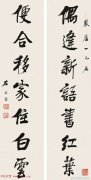 偶逢新語書紅葉
便合移家住白雲